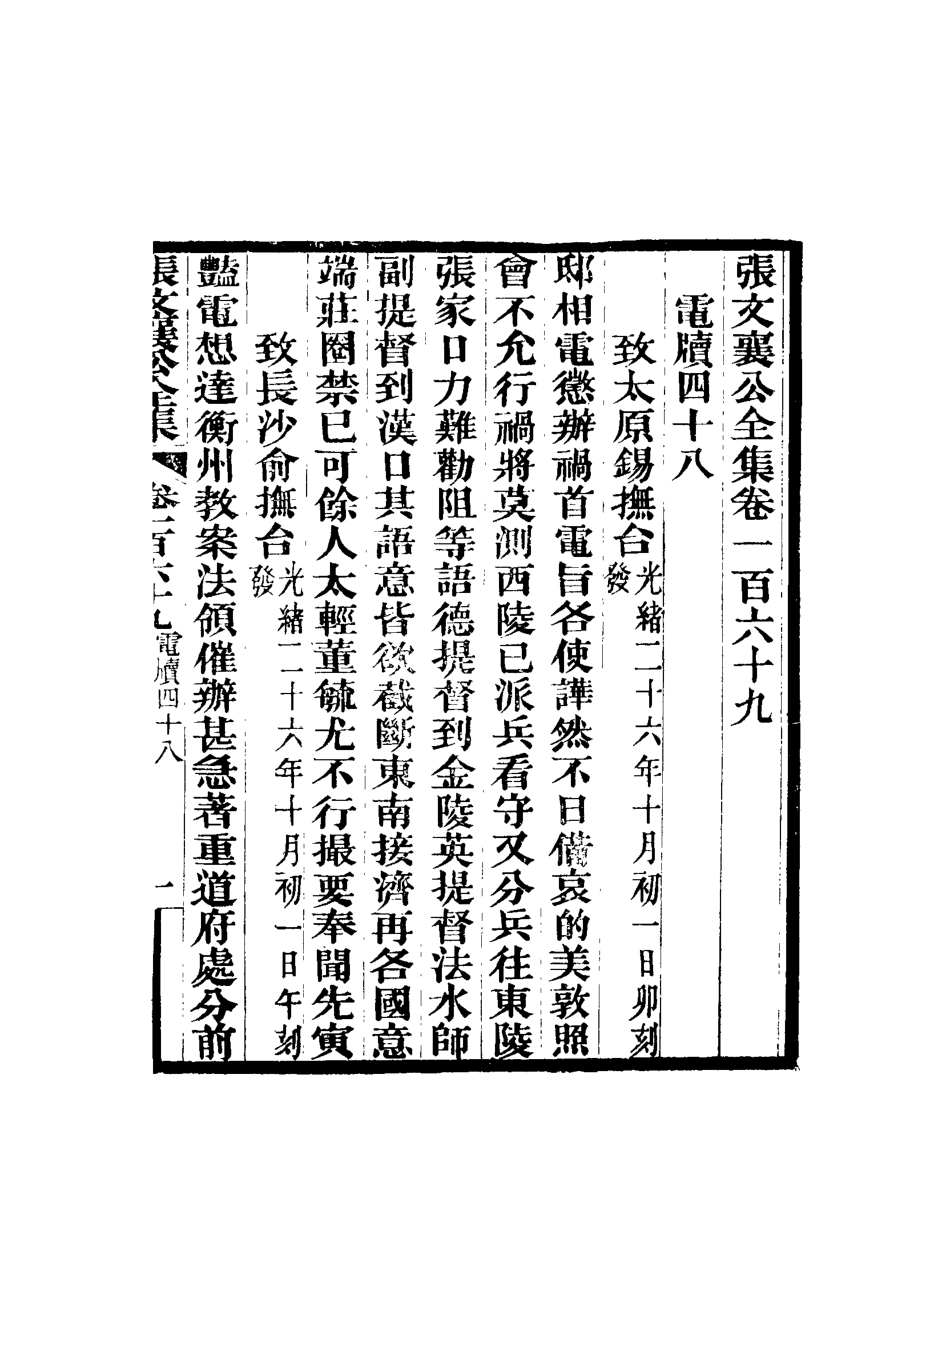 張文襄公全集卷一百六十九
電牘四十八
致太原錫撫台光緒二十六年十月初一日卯刻發
邸相電懲辦禍首電旨各使譁然不日備哀的美敦照
會不允行禍將莫測西陵已派兵看守又分兵往東陵
張家口力難勸阻等語德提督到金陵英提督法水師
副提督到漢口其語意皆欲截斷東南接濟再各國意
端莊圈禁已可餘人太輕董毓尤不行撮要奉聞先寅
致長沙俞撫台光緒二十六年十月初一日午刻發
豔電想達衡州教案法領催辦甚急著重道府處分前
張文襄公全集 卷一百六十九 電牘四十八 一